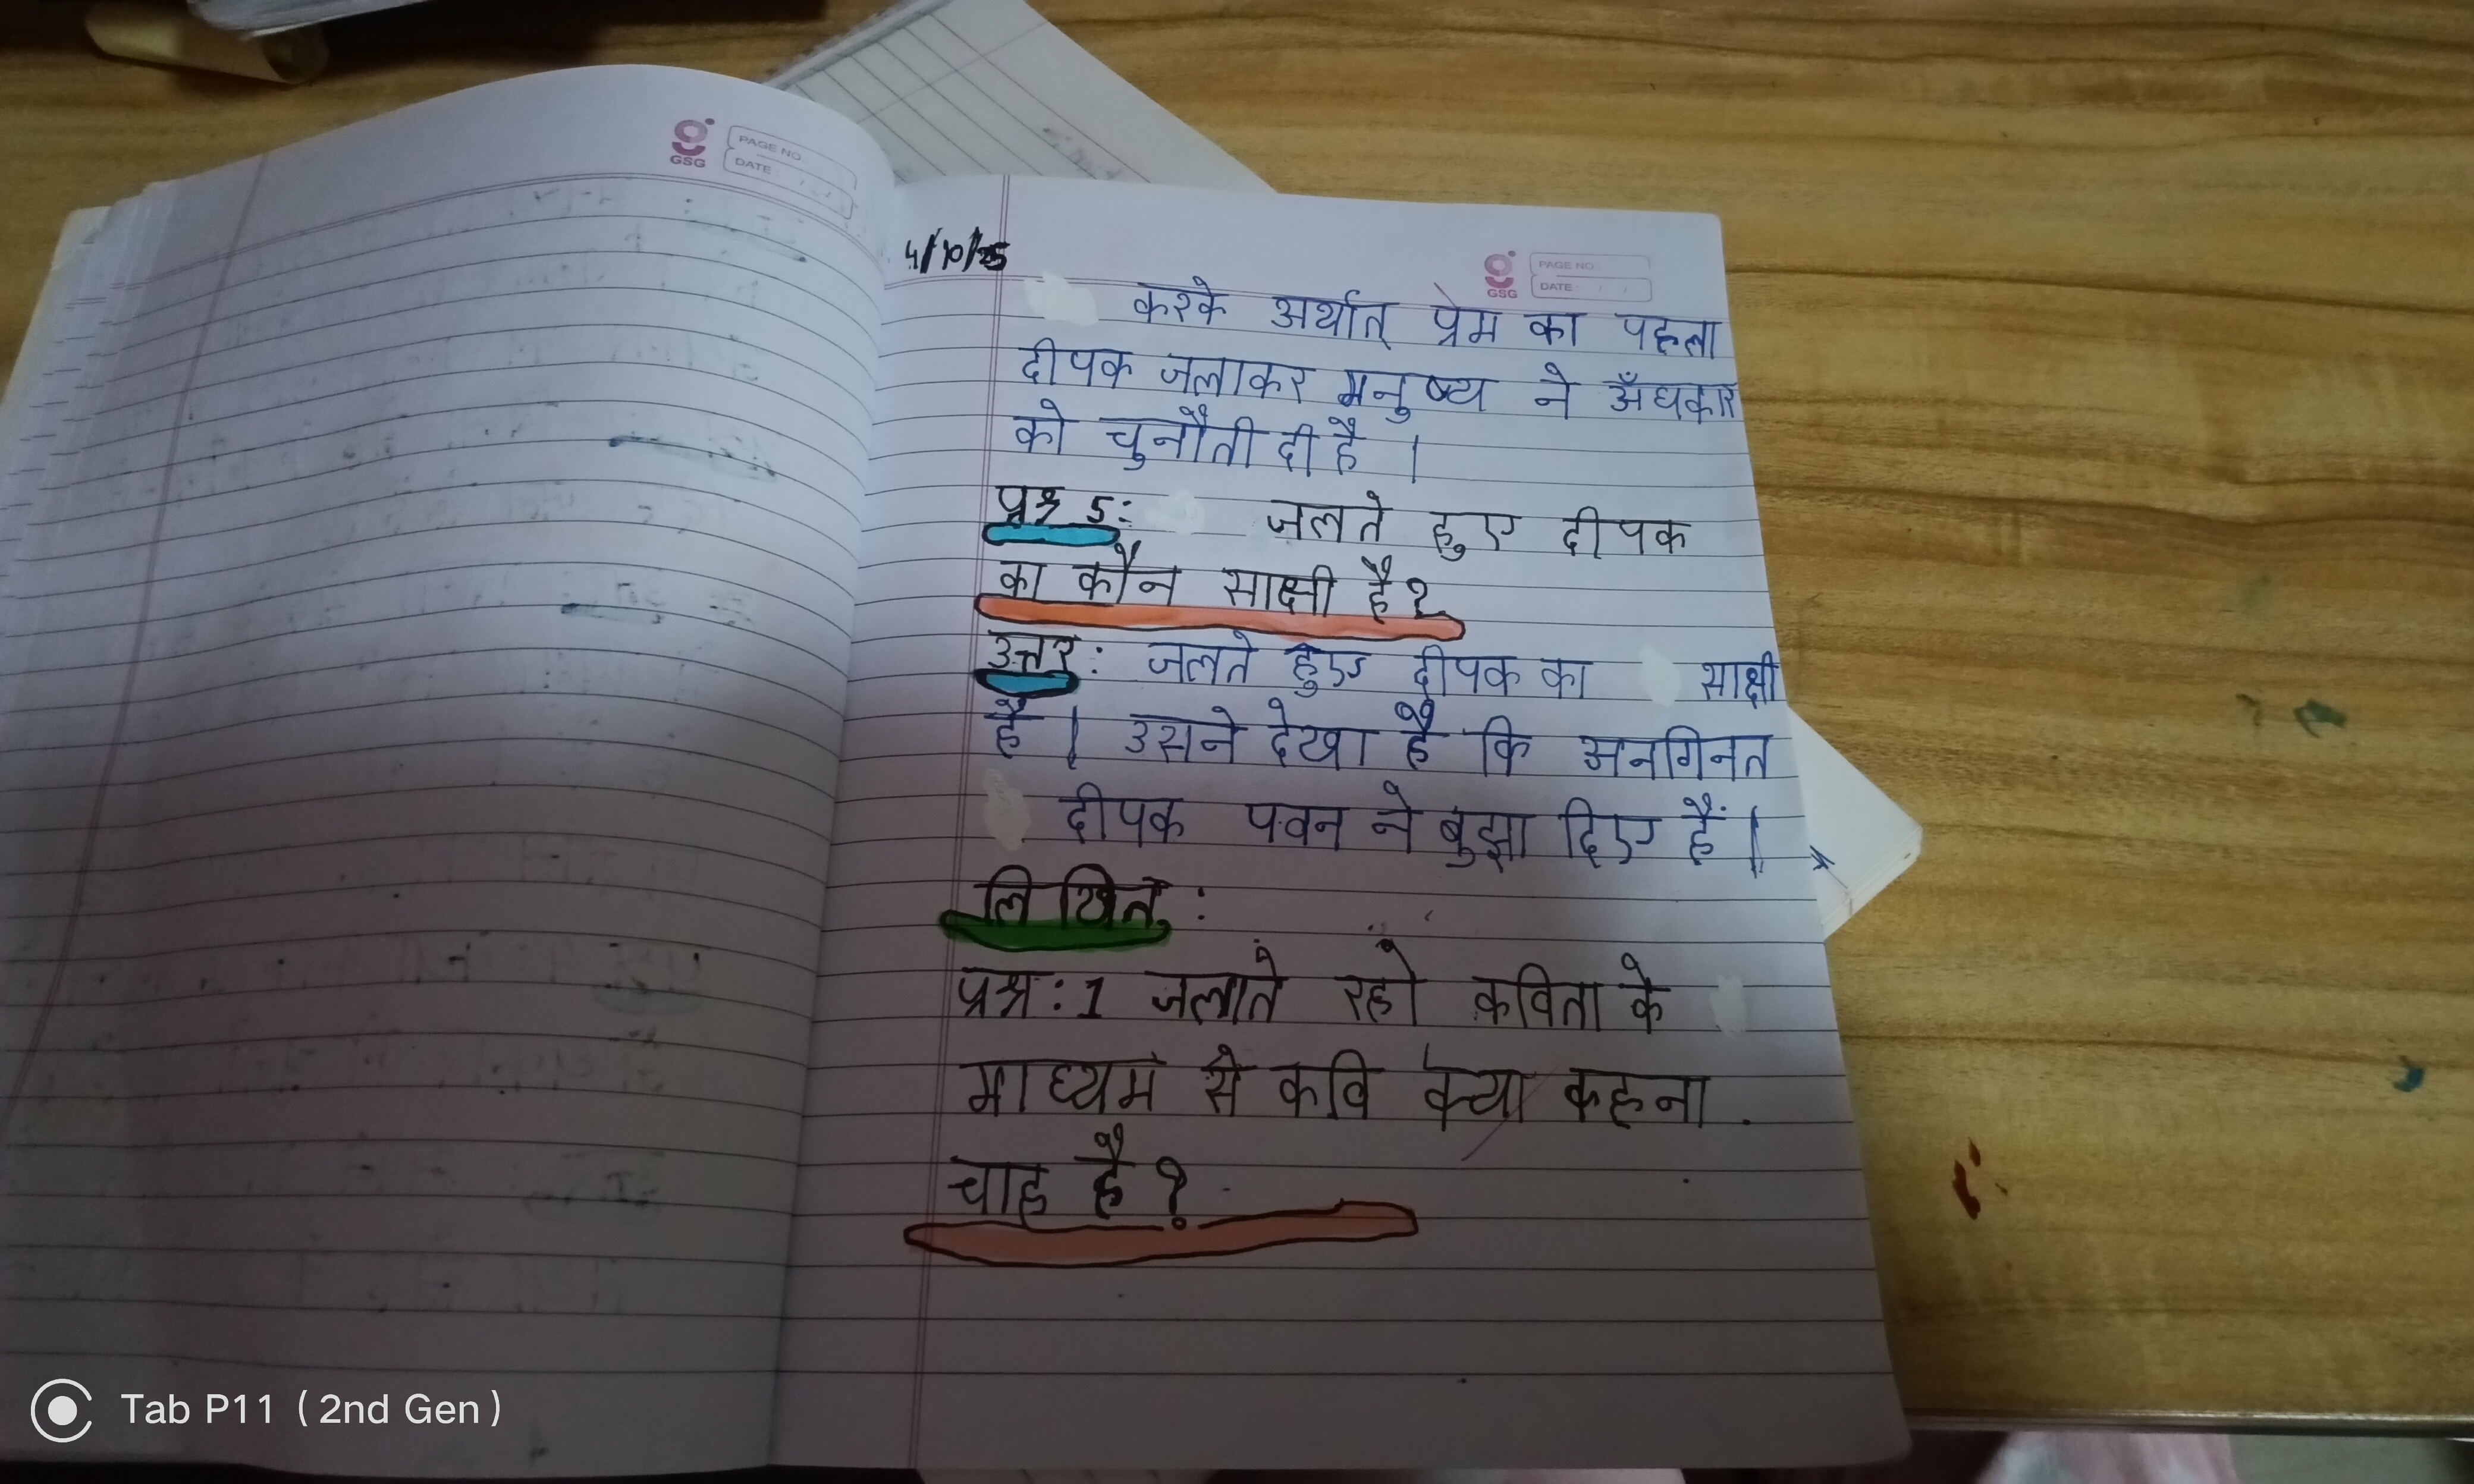 GSG
PAGE NO
DATE
4/10/25
GSG
PAGE NO.
DATE
करके अर्थात् प्रेम का पहला
दीपक जलाकर मनुष्य ने अँधकार
को चुनौती दी है ।
प्रश्न 5: जलते हुए दीपक
का कौन साक्षी है?
उत्तर: जलते हुए दीपक का साक्षी
है । उसने देखा है कि अनगिनत
दीपक पवन ने बुझा दिए हैं ।
लिखित :
प्रश्न : 1 जलाते रहो कविता के
माध्यम से कवि क्या कहना
चाह है?
Tab P11 (2nd Gen)